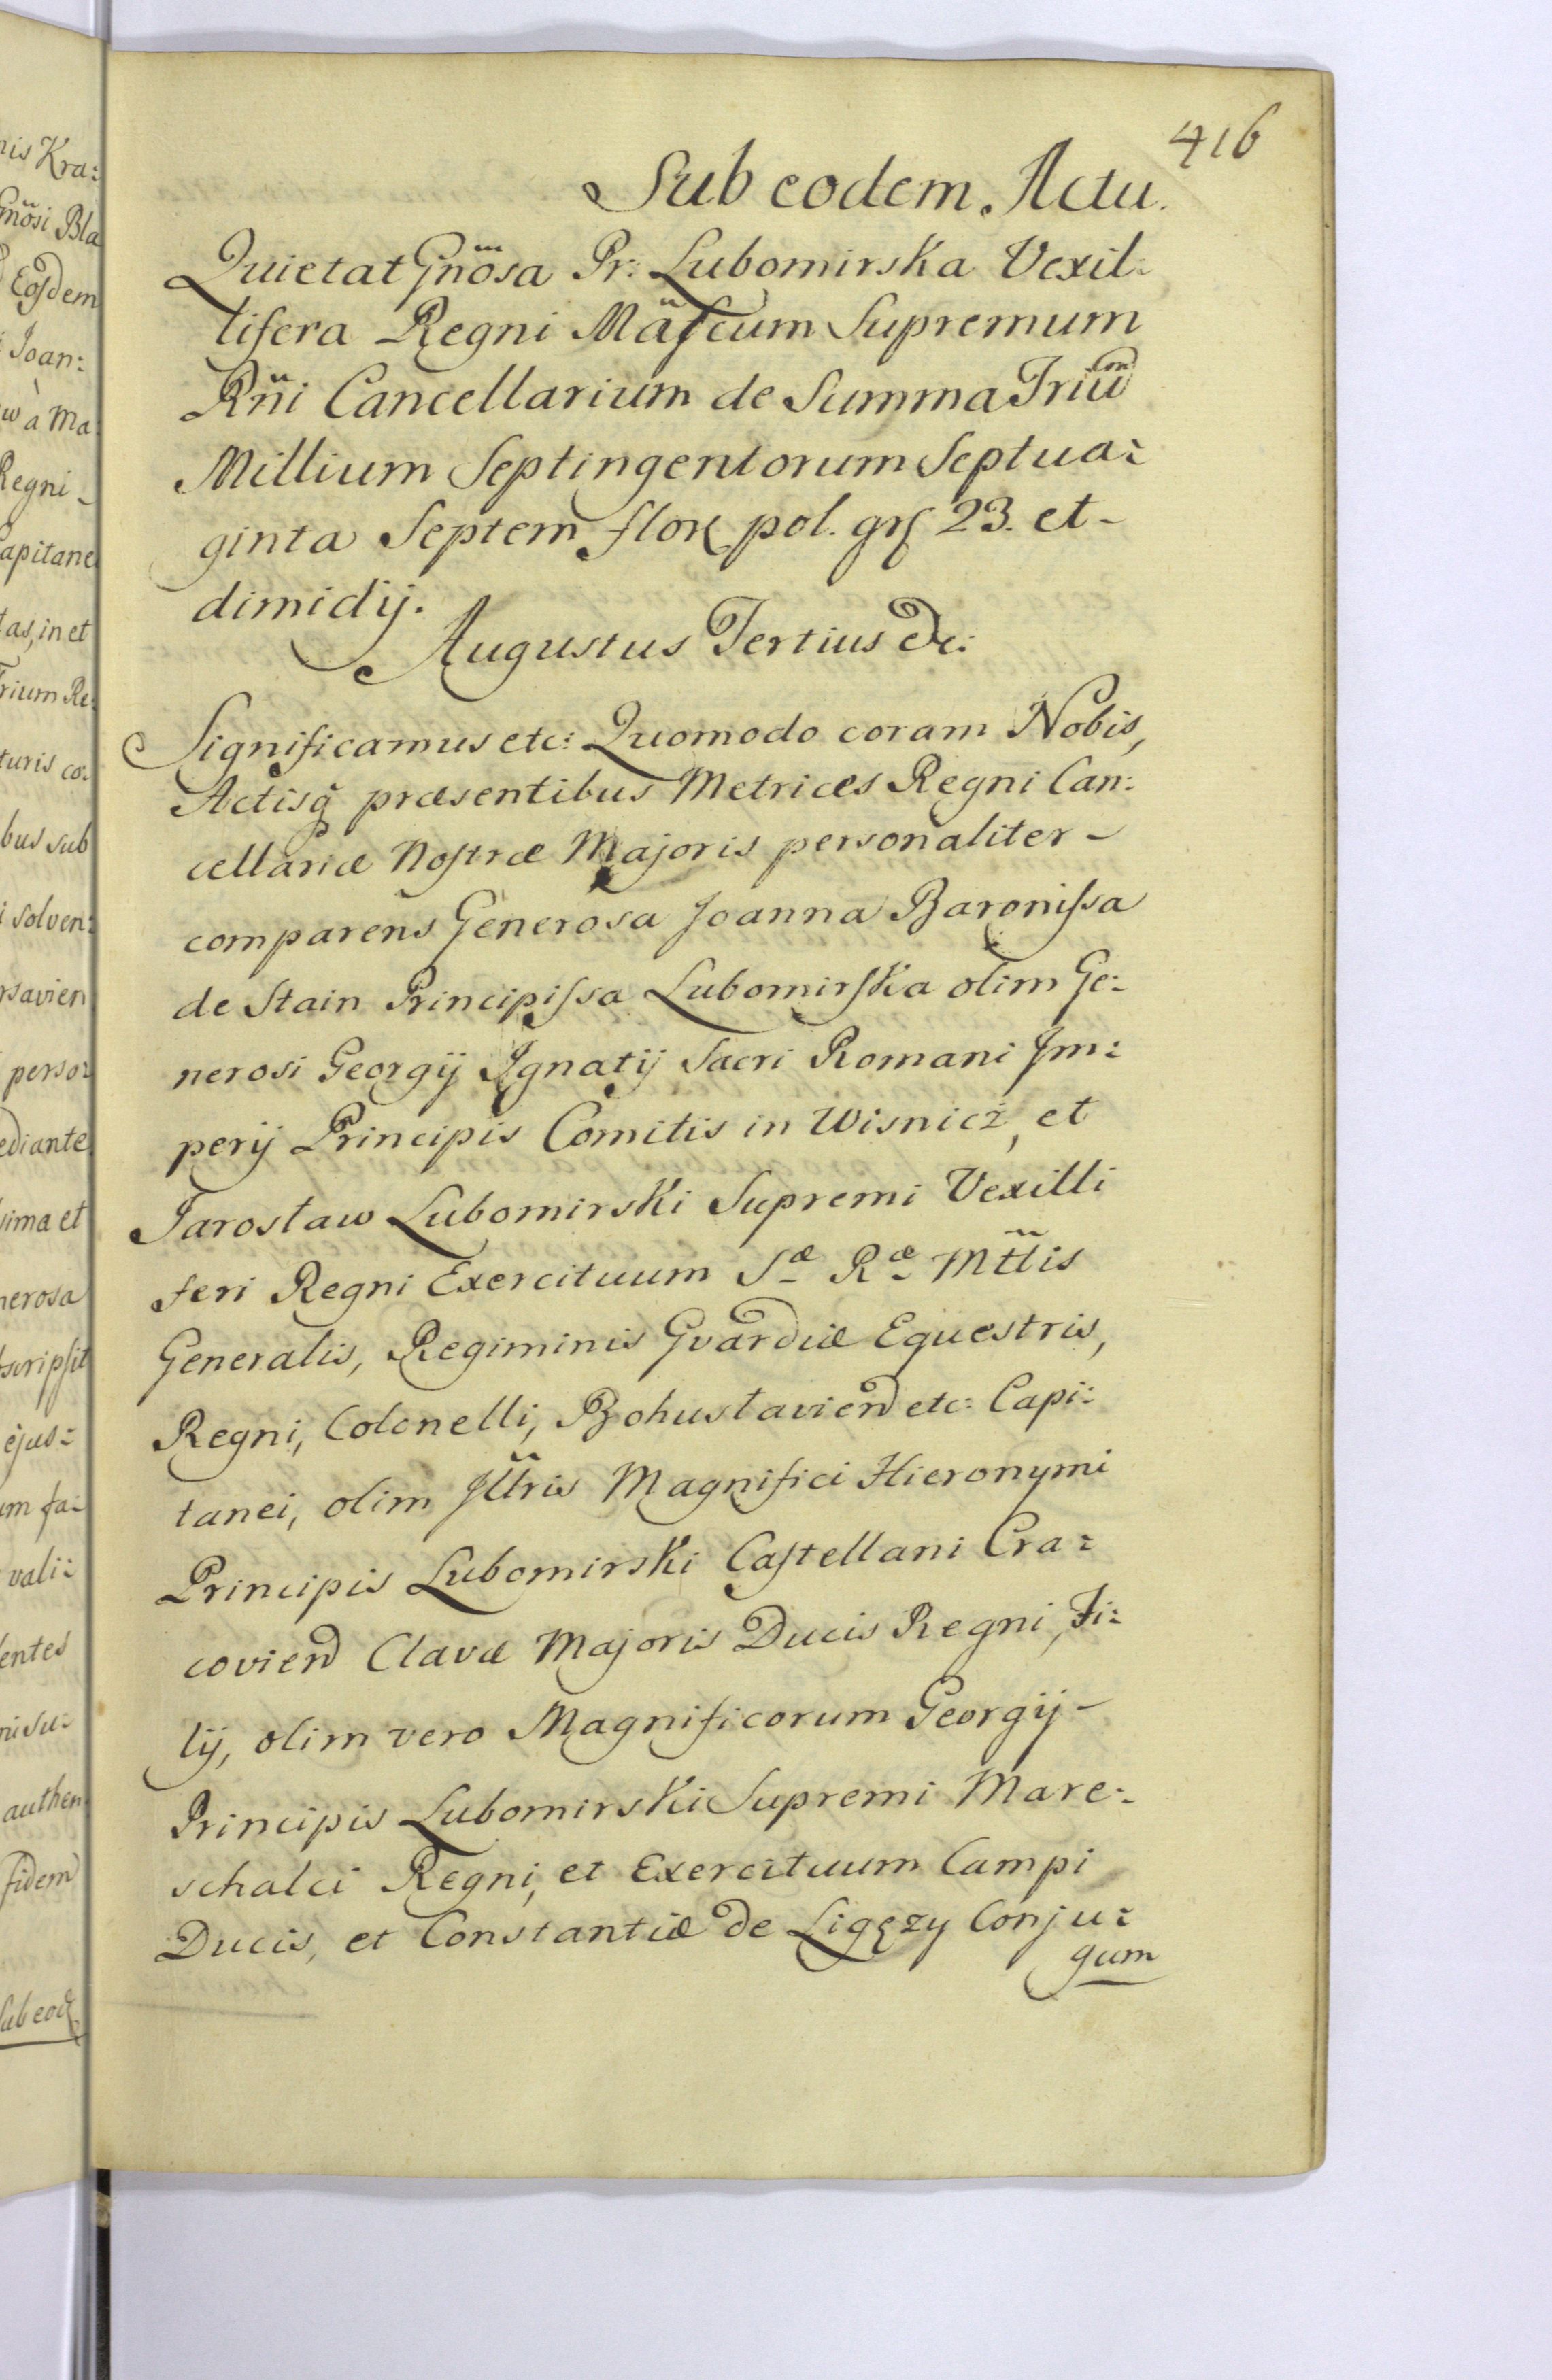 416
Sub eodem Actu.
Quietat Gnosa Pr: Lubomirska Vexil:
lifera Regni Mafcum Supremum
Rñi Cancellarium de Summa Trium
Millium Septingentorum Septua:
ginta Septem flor pol. grſ 23. et
dimidij.
Augustus Tertius &c:
Significamus etc: Quomodo coram Nobis,
Actisq præsentibus Metrices Regni Can:
cellariæ Noſtræ Majoris personaliter
comparens Generosa Joanna Baroniſsa
de Stain Principiſsa Lubomirſka olim Ge:
nerosi Georgij Ignatij Sacri Romani Im:
perij Principis Comitis in Wisnicż, et
Jarosław Lubomirski Supremi Vexilli
feri Regni Exercituum Sæ Ræ Mttis
Generalis, Regiminis Gvardiæ Equestris,
Regni, Colonelli, Bohuslavien etc: Capi:
tanei, olim Illtris Magnifici Hieronymi
Principis Lubomirski Caſtellani Cra:
covien Clavæ Majoris Ducis Regni, Fi:
lij, olim vero Magnificorum Georgij
Principis Lubomirski Supremi Mare:
schalci Regni, et Exercituum Campi
Ducis, et Constantiæ de Ligęzy Conju:
gum
nis Kra:
Gnosi Bla
Eosdem
Joan:
w à Ma
Regni
Capitane
tas, in et
Trium Re:
turis co:
bus sub
i solven:
rsavien
perso:
ediante
sima et
nerosa
scripſit
ejus:
um fa:
vali:
entes
ni su:
authen
fidem
Sub eod